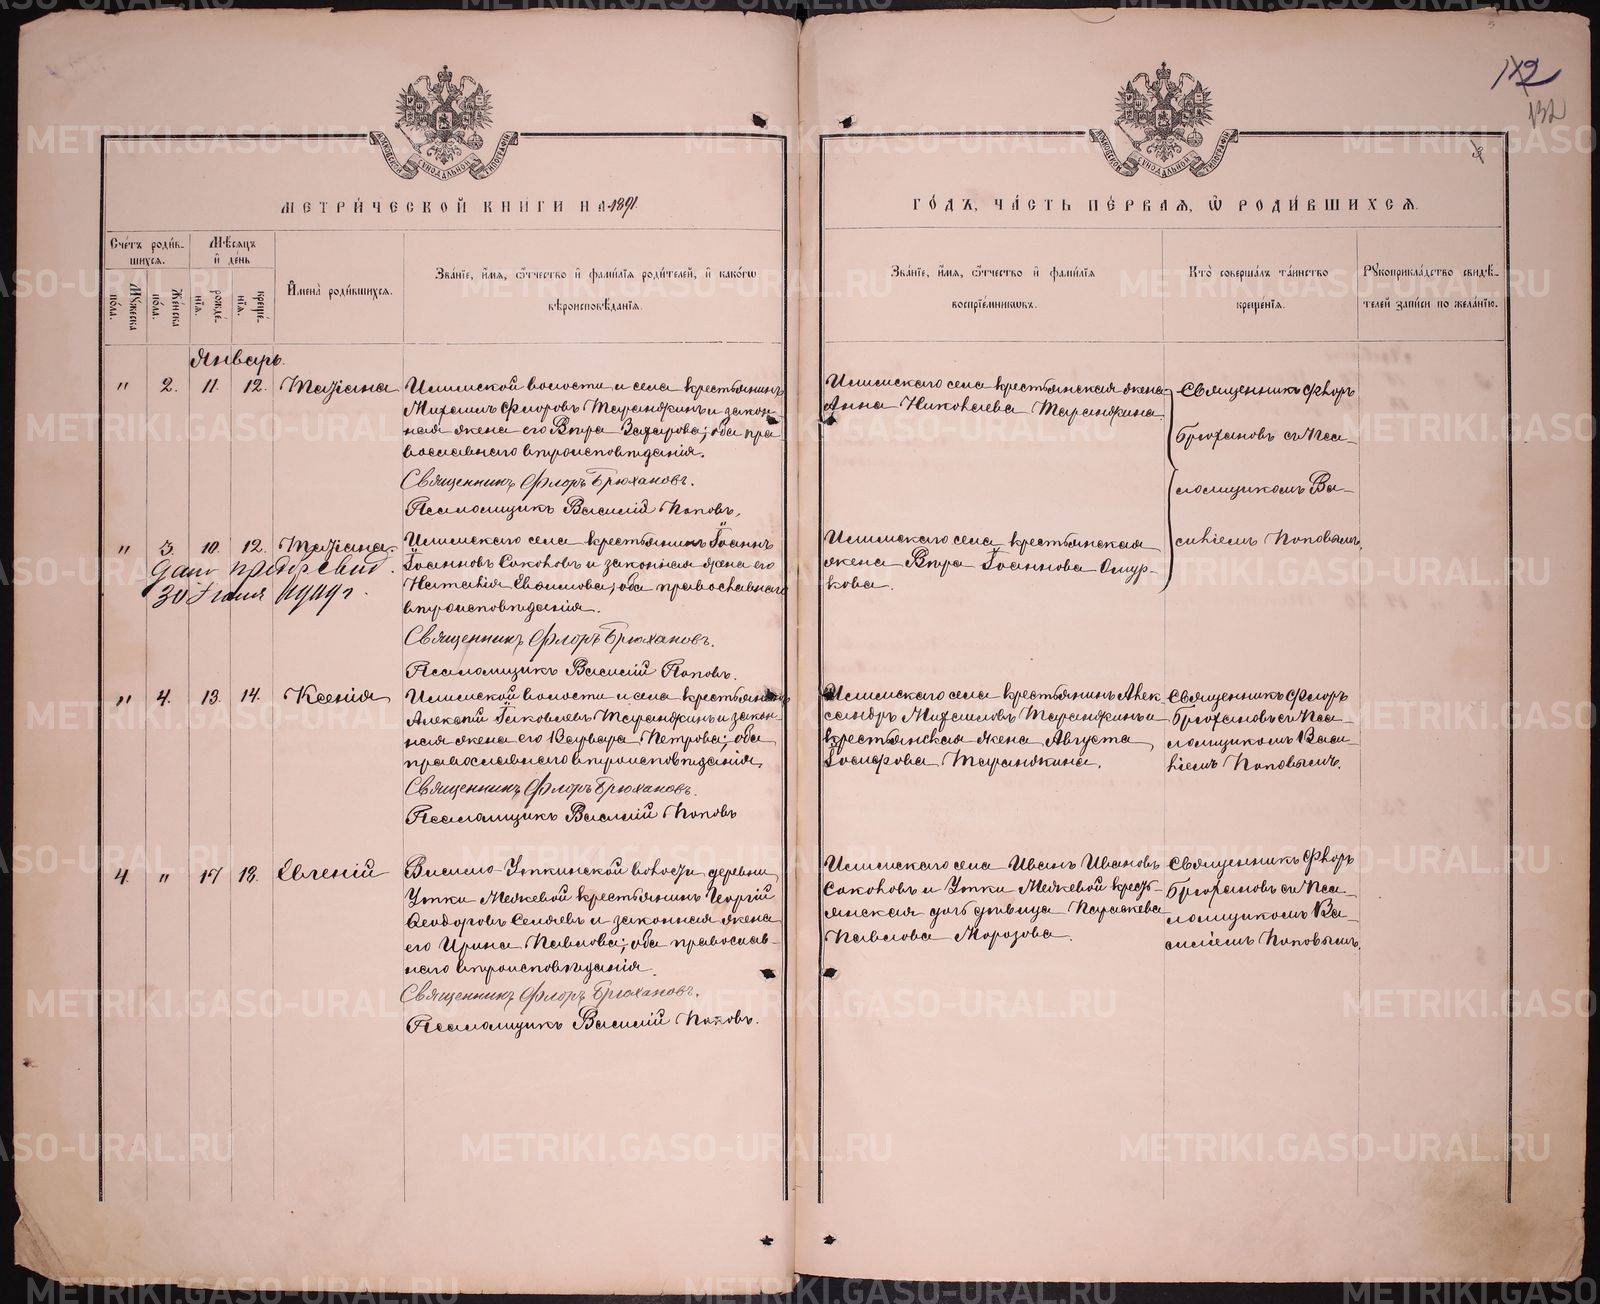 132
МЕТРИЧЕСКОЙ КНИГИ НА 1891
ГОДЪ, ЧАСТЬ ПЕРВАЯ, Ѡ РОДИВШИХСЯ.
Счетъ родившихся.
Мужеска пола.
Женска пола.
Мѣсяцъ и день
рожденія.
крещенія.
Имена родившихся.
Званіе, имя, отчество и фамилія родителей, и какогѡ
вѣроисповѣданія.
Званіе, имя, отчество и фамилія
воспріемниковъ.
Кто совершалъ таинство
крещенія.
Рукоприкладство свидѣтелей записи по желанію.
Январь.
" 2. 11. 12. Татіана
Илимской волости и села крестьянинъ
Михаилъ Флоровъ Таранжинъ и закон-
ная жена его Вѣра Захарова; оба пра
вославнаго вѣроисповѣданія.
Священникъ Флоръ Брюхановъ.
Псаломщикъ Василій Поповъ.
Илимскаго села крестьянская жена
Анна Николаева Таранжина
Священникъ Флоръ
Брюхановъ съ Пса-
ломщикомъ Ва-
силіемъ Поповымъ.
" 3. 10. 12. Татіана.
30 Іюля
Илимскаго села крестьянинъ Іоаннъ
Іоанновъ Соколовъ и законная жена его
Наталія Евфимова; оба православнаго
вѣроисповѣданія.
Священникъ Флоръ Брюхановъ.
Псаломщикъ Василій Поповъ.
Илимскаго села крестьянская
жена Вѣра Іоаннова
" 4. 13. 14. Ксенія
Илимской волости и села крестьянинъ
Алексій Іаковлевъ Таранжинъ и закон-
ная жена его Варвара Петрова; оба
православнаго вѣроисповѣданія,
Священникъ Флоръ Брюхановъ.
Псаломщикъ Василій Поповъ
Илимскаго села крестьянинъ Алек
сандръ Михаиловъ Таранжинъ и
крестьянская жена Августа
Таранжина.
Священникъ Флоръ
Брюхановъ съ Пса-
ломщикомъ Васи-
ліемъ Поповымъ.
4. " 17 18. Евгеній
Висимо-Уткинской волости деревни
Утки Межевой крестьянинъ Георгій
Ѳеодоровъ и законная жена
его Ирина Павлова; оба православ-
наго вѣроисповѣданія.
Священникъ Флоръ Брюхановъ.
Псаломщикъ Василій Поповъ.
Илимскаго села Иванъ Ивановъ
Соколовъ и Утки Межевой кресть-
янская дочь дѣвица Параскева
Павлова Морозова.
Священникъ Флоръ
Брюхановъ съ Пса-
ломщикомъ Ва-
силіемъ Поповымъ.
METRIKI.GASO-URAL.RU